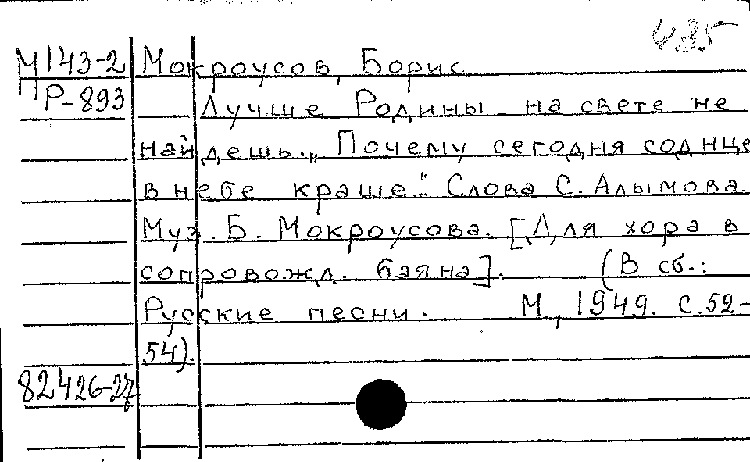 485
М143-2 Мокроусов, Борис
Р-893 Лучше Родины на свете не
найдешь. „Почему сегодня солнце
в небе краше." Слова С. Алымова.
Муз. Б. Мокроусова. [Для хора в
сопровожд. баяна]. (В сб.:
Русские песни. М., 1949. С. 52-
54).
82426-27